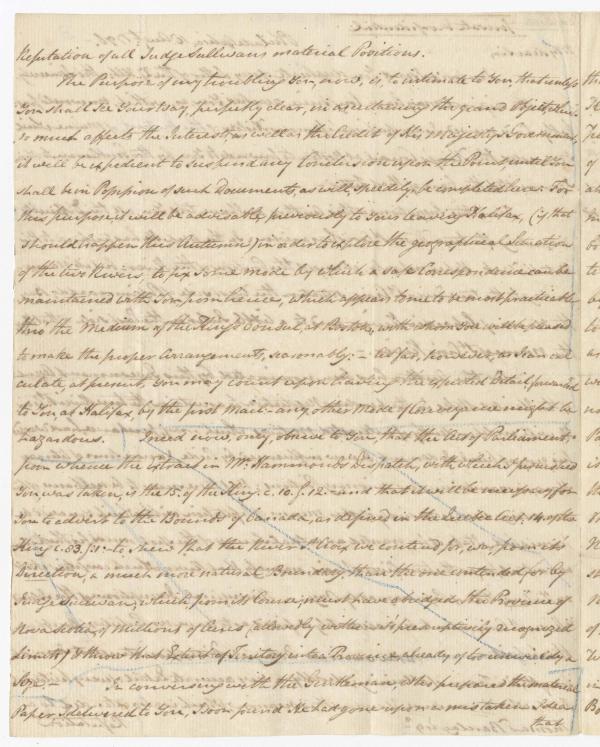 Refutation of all Judge Sullivans material Positions.
The Purpose of my troubling You, now, is, to intimate to You, that unless
You shall see Your Way, perfectly clear, in ascertaining the grand Object, which
so much affects the Interest, as well as the Credit of His Majesty's Government,
it will be expedient to suspend any Conclusion upon the Point, until You
shall be in Possession of such Documents, as will, speedily, be completed here. For
this purpose, it will be advisable, previously to Your leaving Halifax, (if that
should happen this Autumn) in order to explore the geographical Situation
of the two Rivers, to fix some mode by which a safe Correspondence can be
maintained with You from hence, which appears to me to be most practicable
thro' the Medium of the King's Consul, at Boston, with whom You will be pleased
to make the proper Arrangements, seasonably: — so far, however, as I can cal
culate, at present, You may count upon having the expected Detail, forwarded
to You, at Halifax, by the first Mail — any other Mode of Conveyance might be
hazardous. I need now, only, observe to You, that the Act of Parliament,
from whence the extract in Mr. Hammond's Dispatch, with which I furnished
You was taken, is the 13. of the King. c. 10. s. 12. — and that it will be necessary for
You to advert to the Bounds of Canada, as defined in the Quebec Act, 14. of the
King c. 83. s. 1: — to shew that the River St Croix we contend for, was, from it's
Direction, a much more natural Boundary, than the one contended for by
Judge Sullivan, which from its Course, must have abridged the Province of
Nova Scotia, of Millions of Acres (allowedly within its presumptively recognized
Limits) & thrown that Extent of Territory into a Province already of too unwieldy a
Size. In conversing with the Gentleman, who prepared the material
Paper, I delivered to You, I soon found He had gone upon a mistaken Idea
that